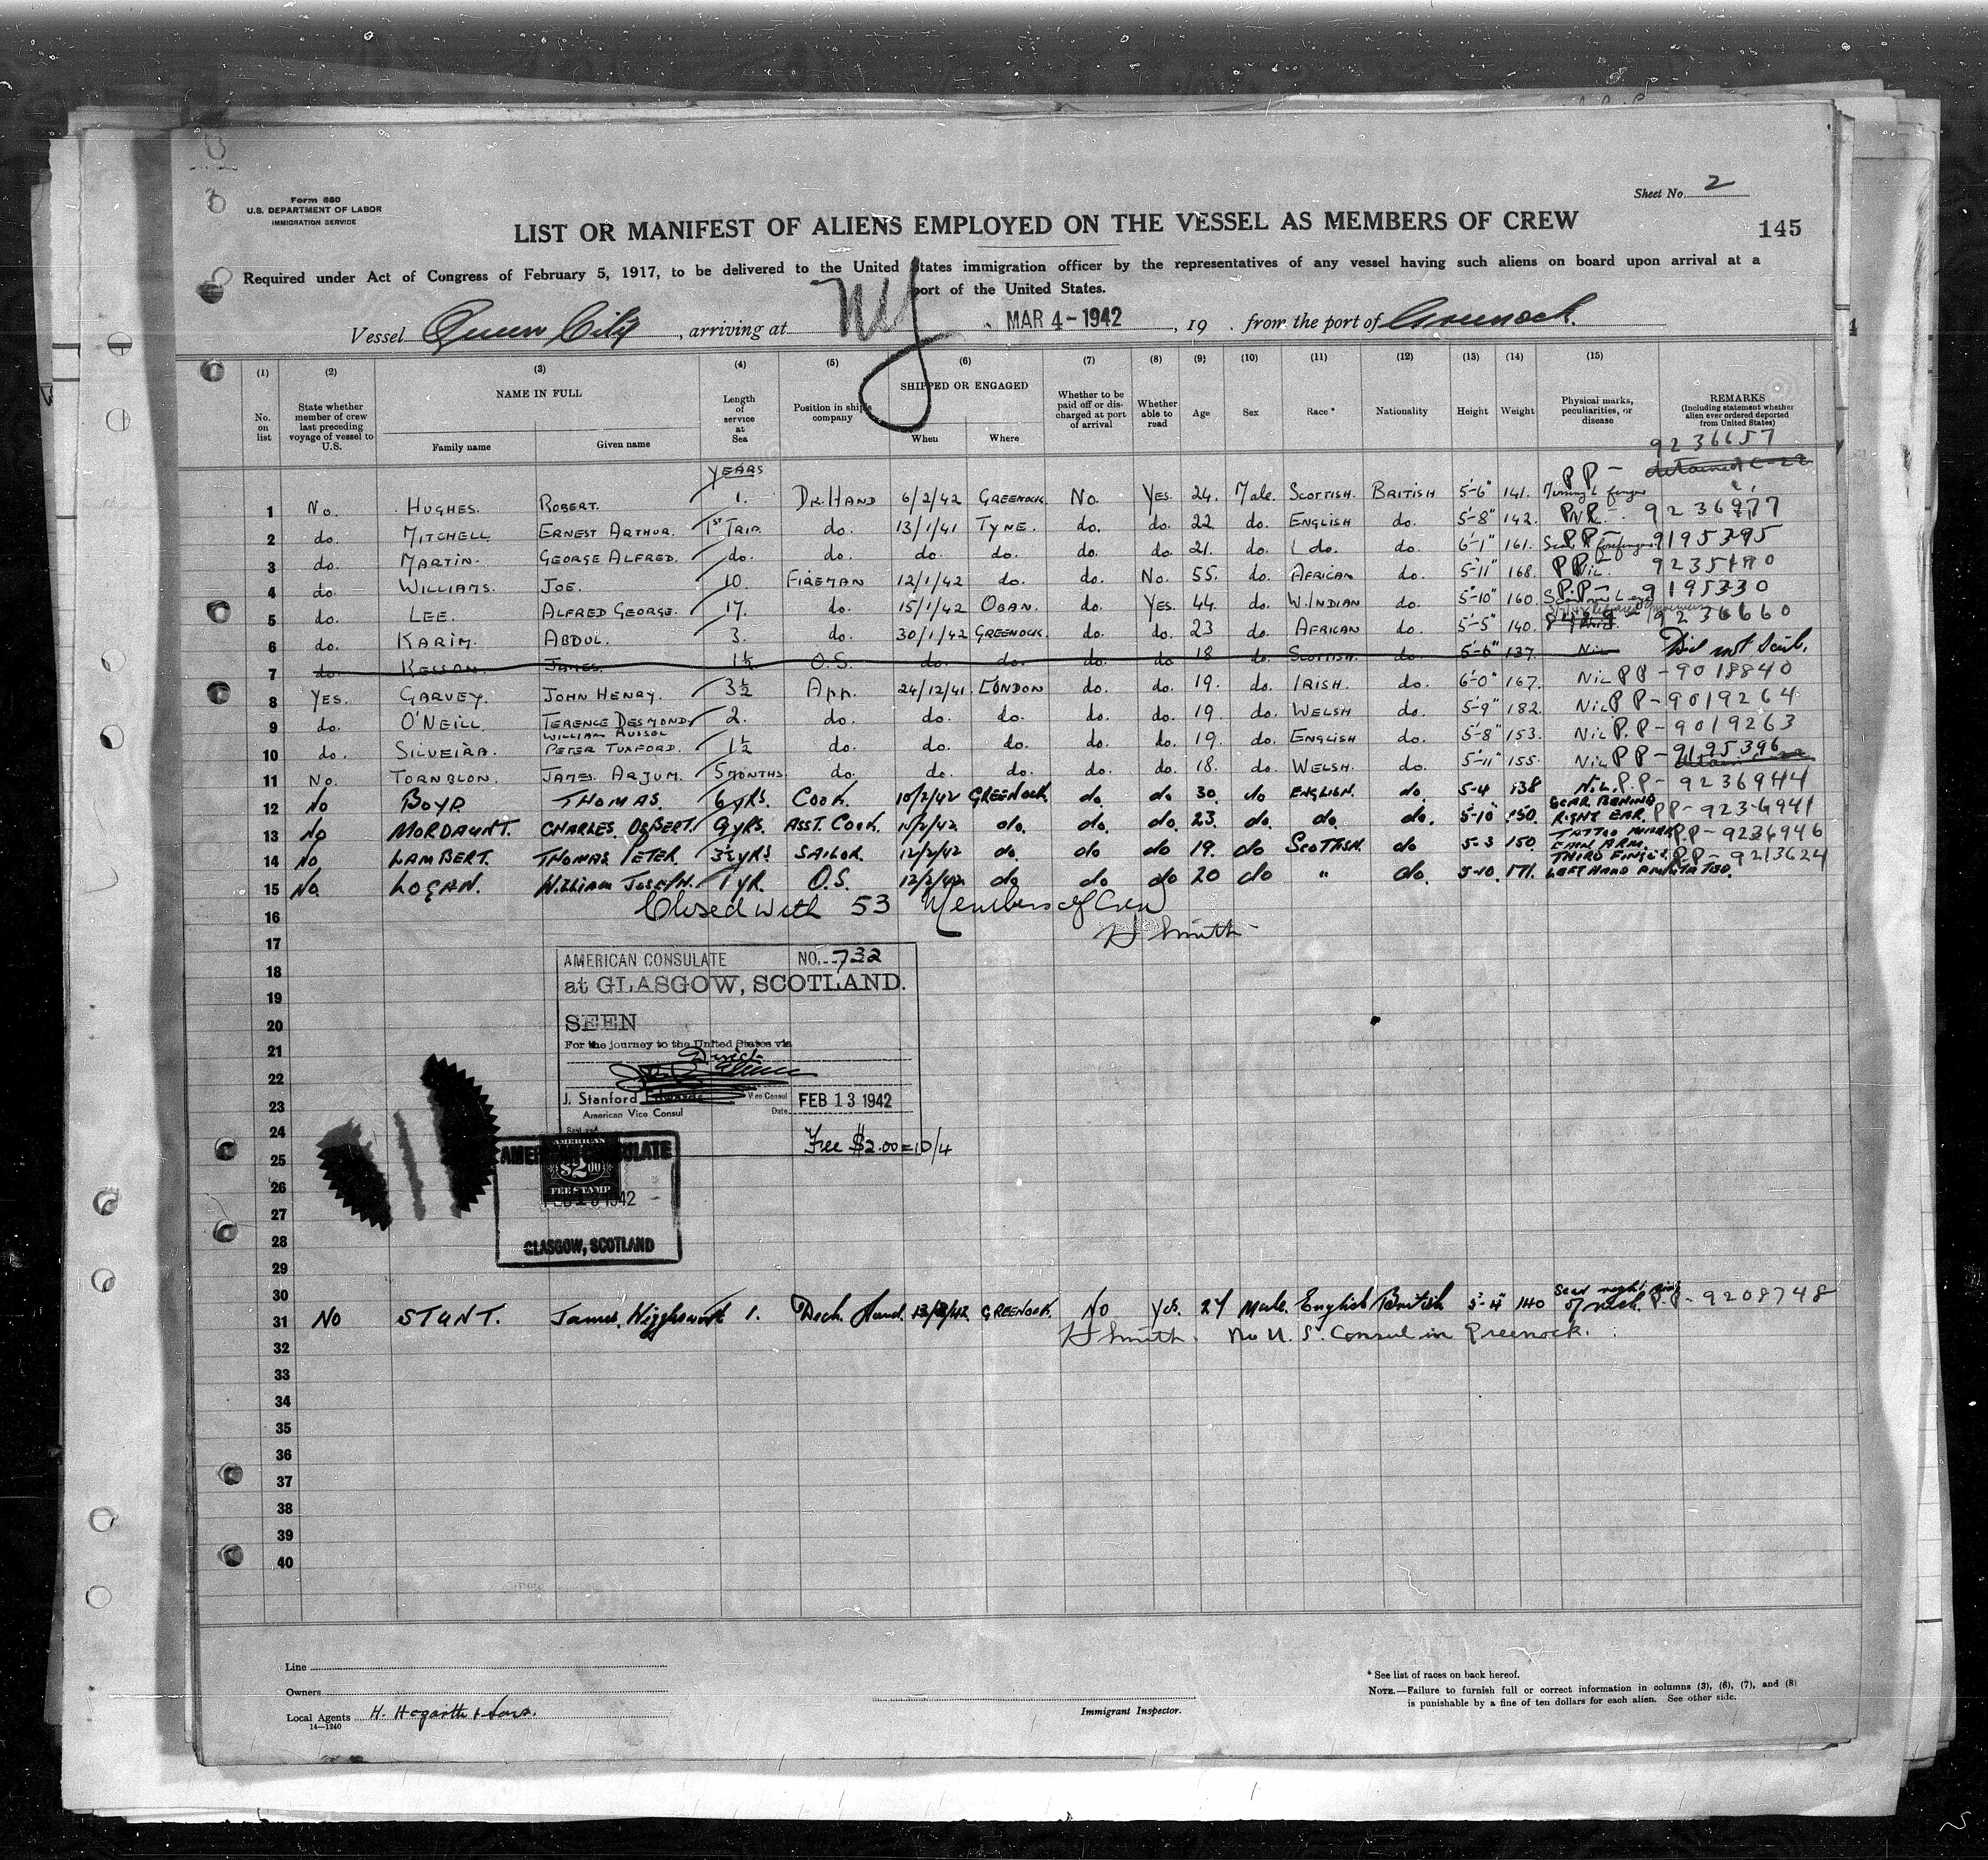 Sheet No. 2
Form 680
U.S. DEPARTMENT OF LABOR
IMMIGRATION SERVICE
LIST OR MANIFEST OF ALIENS EMPLOYED ON THE VESSEL AS MEMBERS OF CREW
145
Required under Act of Congress of February 5, 1917, to be delivered to the United States immigration officer by the representatives of any vessel having such aliens on board upon arrival at a
port of the United States.
Vessel Queen City, arriving at NY. MAR 4 - 1942, 19 . from the port of Greenock.
(1) (2) (3) (4) (5) (6) (7) (8) (9) (10) (11) (12) (13) (14) (15)
No. on list
State whether member of crew last preceding voyage of vessel to U.S.
NAME IN FULL
Family name Given name
Length of service at Sea
Position in ship's company
SHIPPED OR ENGAGED
When Where
Whether to be paid off or discharged at port of arrival
Whether able to read
Age Sex Race* Nationality Height Weight
Physical marks, peculiarities, or disease
REMARKS
(Including statement whether alien ever ordered deported from United States)
YEARS
9236657
detained C-22
1 No. HUGHES. ROBERT. 1. DK. HAND 6/2/42 GREENOCK No. YES. 24. Male. SCOTTISH. BRITISH 5'-6" 141. PP- Missing L finger
2 do. MITCHELL ERNEST ARTHUR. 1ST TRIP. do. 13/1/41 TYNE. do. do. 22 do. ENGLISH do. 5'-8" 142. 9236977
3 do. MARTIN. GEORGE ALFRED. do. do. do. do. do. do. 21. do. do. do. 6'-1" 161. Scar R forefinger PP- 9195395
4 do. WILLIAMS. JOE. 10. FIREMAN 12/1/42 do. do. No. 55. do. AFRICAN do. 5'-11" 168. Nil. PP 9235190
5 do. LEE. ALFRED GEORGE. 17. do. 15/1/42 OBAN. do. YES. 44. do. W. INDIAN do. 5'-10" 160. PP- 9195330
6 do. KARIM. ABDUL. 3. do. 30/1/42 GREENOCK. do. do. 23 do. AFRICAN do. 5'-5" 140. 9236660
7 do KESSON JAMES. 1½ O.S. do. do. do. do 18 do. SCOTTISH. do 5'-6" 137. Nil Did not sail.
8 YES. GARVEY. JOHN HENRY. 3½ App. 24/12/41. LONDON do. do. 19. do. IRISH. do. 6'-0" 167. Nil PP - 9018840
9 do. O'NEILL TERENCE DESMOND 2. do. do. do. do. do. 19. do. WELSH do. 5'-9" 182. Nil PP - 9019264
WILLIAM RUSSEL
10 do. SILVEIRA. PETER TUXFORD. 1½ do. do. do. do. do. 19. do. ENGLISH do. 5'-8" 153. Nil P.P - 9019263
11 No. TORNBLON. JAMES ARJUM. 5 MONTHS. do. do. do. do. do. 18. do. WELSH. do. 5'-11" 155. Nil PP - 9195396
12 No BOYD THOMAS. 6 yrs. COOK. 10/2/42 GREENOCK do. do 30. do ENGLISH. do. 5-4 138 NIL. P.P - 9236944
13 No MORDAUNT. CHARLES. OSBERT. 9 yrs. ASST. COOK. 10/2/42. do. do. do. 23. do. do. do. 5-10 150. SCAR BEHIND RIGHT EAR. PP - 9236941
14 No LAMBERT. THOMAS PETER. 3½ yrs. SAILOR. 12/2/42 do. do do 19. do SCOTTISH. do 5-3 150. TATTOO MARK ARM. P.P - 9236946
15 No. LOGAN. William Joseph. 1 yr. O.S. 12/2/42 do do do 20 do " do. 5-10. 171. THIRD FINGER LEFT HAND AMPUTATED. P.P - 9213624
16 Closed with 53 Members of Crew
17 H Smith
18
19
20
21
22
23
24
25
26
27
28
29
30
AMERICAN CONSULATE NO. 732
at GLASGOW, SCOTLAND.
SEEN
For the journey to the United States via
Direct
J. Stanford Edwards Vice Consul
American Vice Consul
Date FEB 13 1942
Fee $2.00 = 10/4
AMERICAN CONSULATE
AMERICAN
$2.00
FEE STAMP
FEB 13 1942
GLASGOW, SCOTLAND
31 NO STUNT. James. Wigglesworth 1. Deck Hand. 13/2/42 GREENOCK. No yes. 27 Male. English British 5'-4" 140 Scar right side of neck. P.P - 9208748
32 H Smith. No U. S. Consul in Greenock.
33
34
35
36
37
38
39
40
Line
Owners
Local Agents H. Hogarth & Sons.
14—1240
Immigrant Inspector.
* See list of races on back hereof.
NOTE.—Failure to furnish full or correct information in columns (3), (6), (7), and (8)
is punishable by a fine of ten dollars for each alien. See other side.